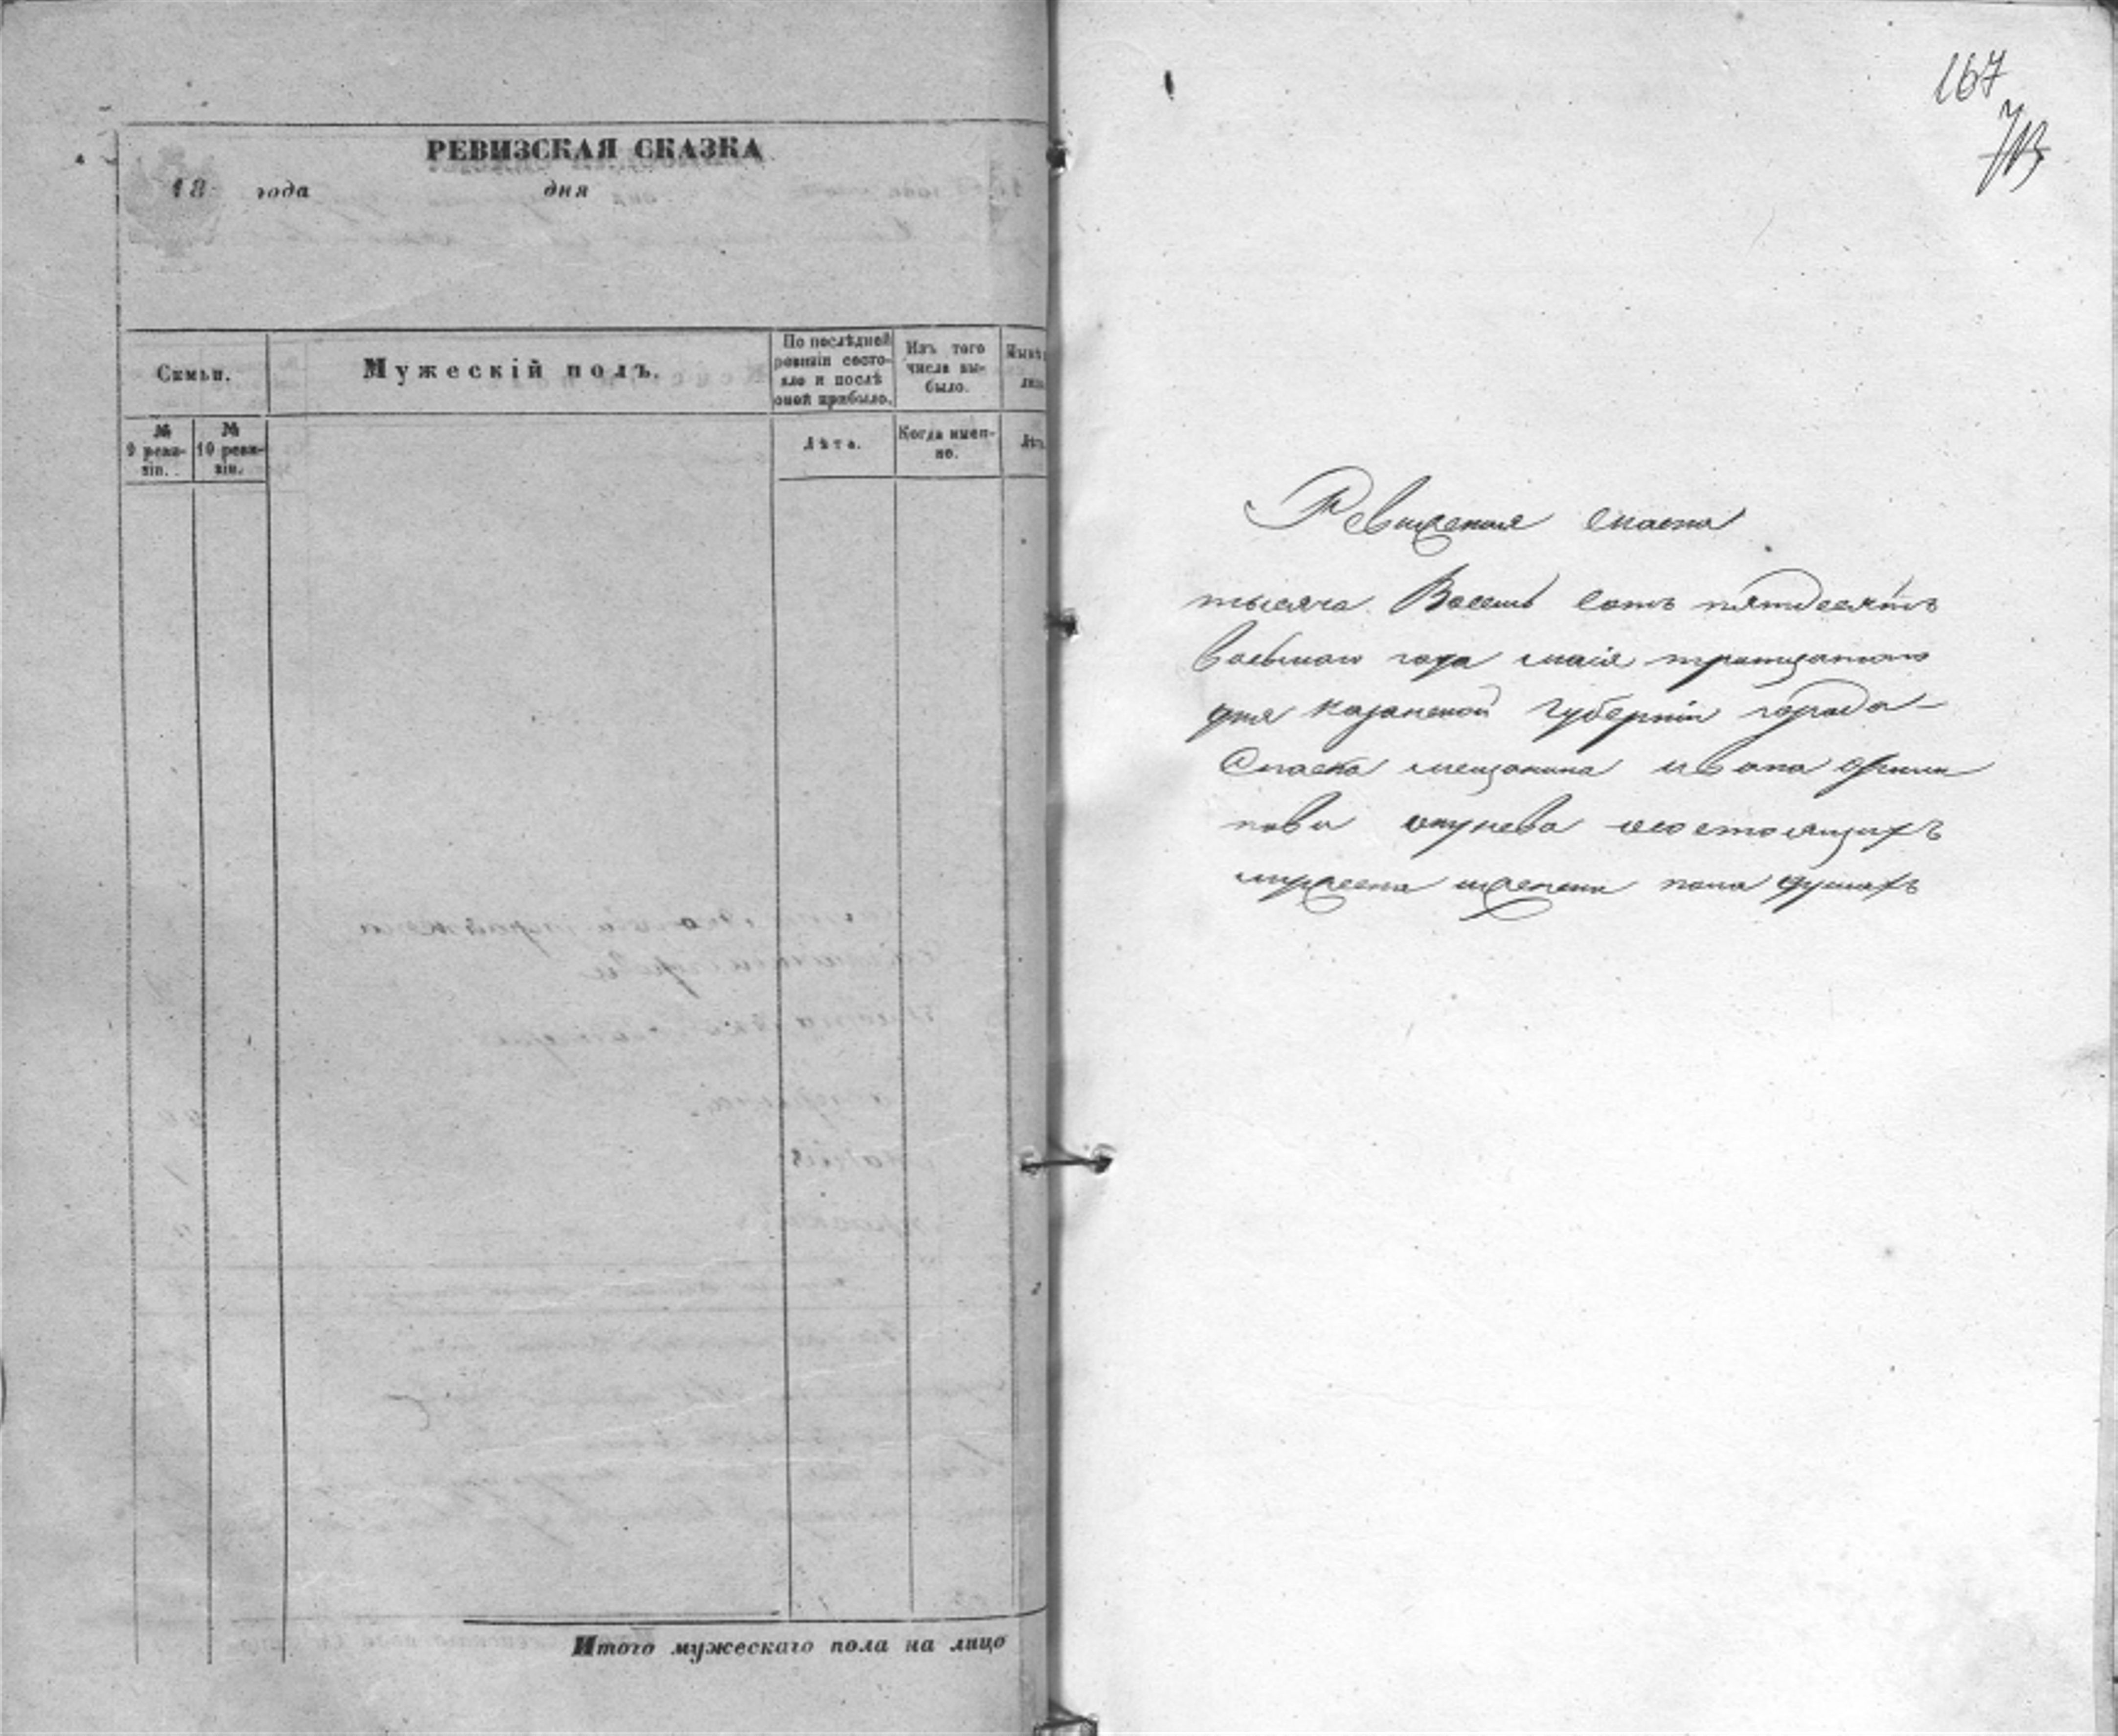 РЕВИЗСКАЯ СКАЗКА
18 года дня
Семьи.
Мужескій полъ.
По послѣдней
ревизіи состо-
яло и послѣ
оной прибыло.
Изъ того
числа вы-
было.
№
9 реви-
зіи.
№
10 реви-
зіи.
Лѣта.
Когда имен-
но.
Итого мужескаго пола на лицо
167
Ревижская скаска
тысяча Восемь сотъ пятдесятъ
восьмаго года маія тритцатаго
дня казанской Губерніи города
Спаска мещанина ивана
окунева состоящихъ
мужеска женска пола душахъ